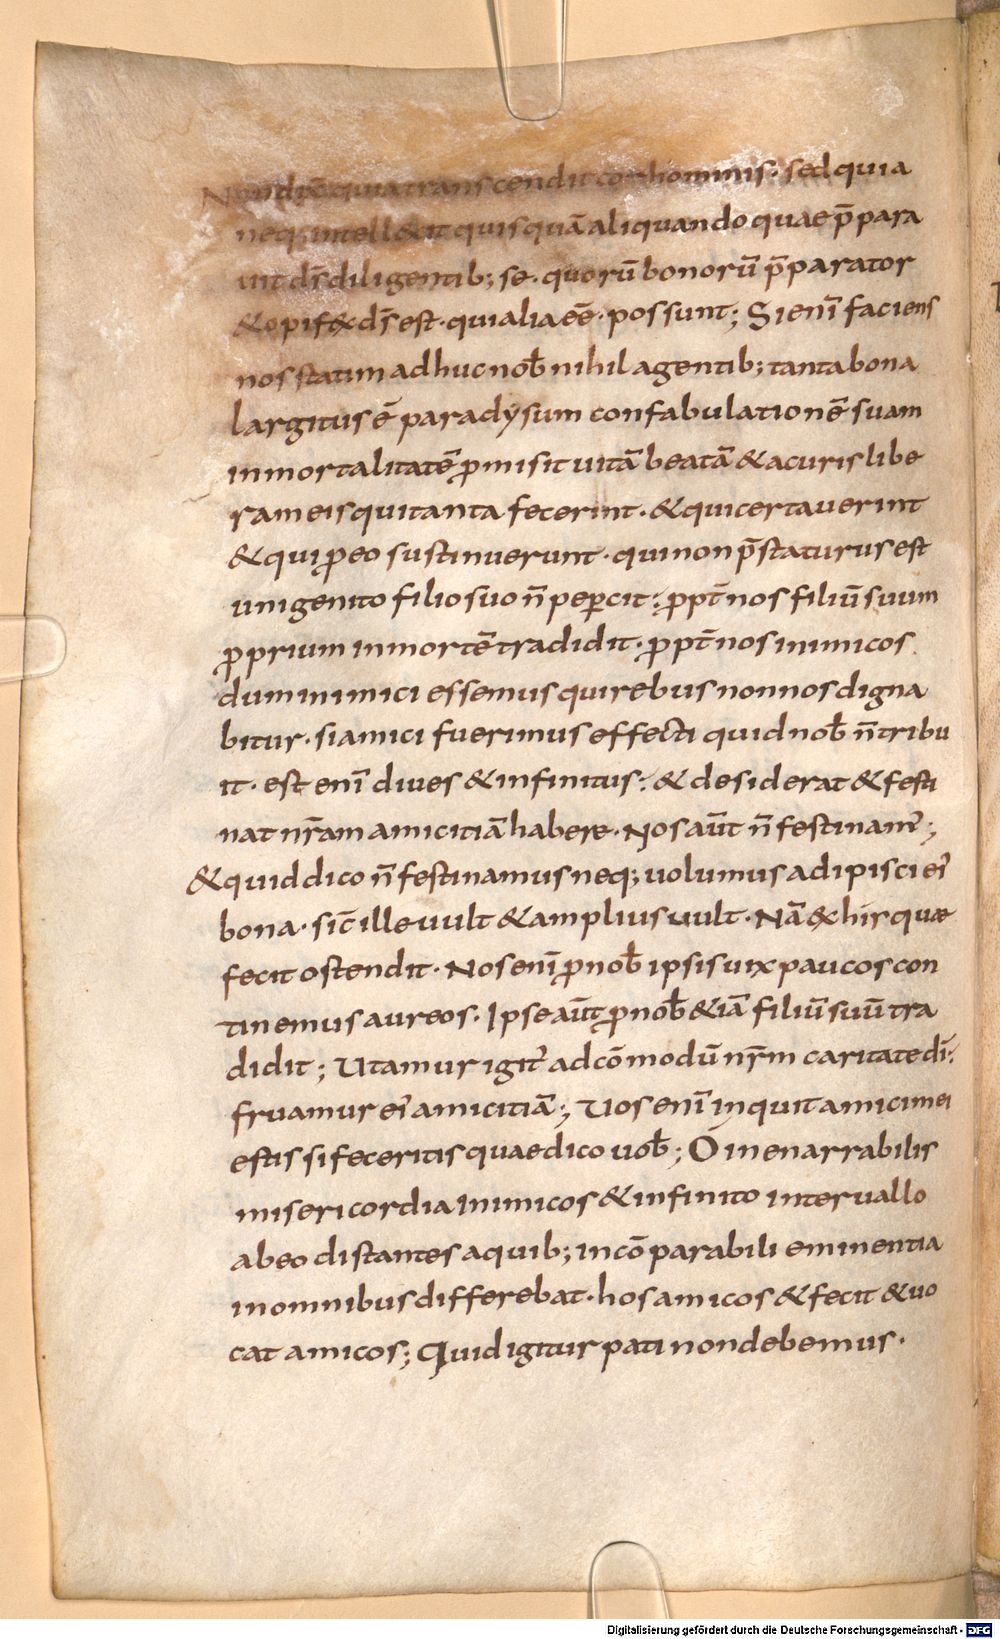 Non dix̄ quia transcendit cor hominis· sed quia
neq; intell&it quisquā aliquando quae p̄para
uit d̄s diligentib; se· quorū bonorū p̄parator
& opif& d̄s est· qui alia eē· possunt; Si enī faciens
nos statim adhuc nob̄ nihil agentib; tanta bona
largitus ē paradysum confabulationē suam
inmortalitatē ꝓmisit uitā beatā & a curis libe
ram eis qui tanta fecerint· & qui certauerint
& qui ꝓ eo sustinuerunt· qui non p̄staturus est
unigenito filio suo n̄ peꝑcit; ꝓpt̄ nos filiū suum
ꝓprium in mortē tradidit· ꝓpt̄ nos inimicos
dum inimici essemus qui rebus non nos digna
bitur· si amici fuerimus effecti quid nob̄ n̄ tribu
it· est enī diues & infinitus; & desiderat & festi
nat nr̄am amicitiā habere· Nos aūt n̄ festinam᾽;
& quid dico n̄ festinamus neq; uolumus adipisci ei᾽
bona· sic̄ ille uult & amplius uult· Nā & hir quae
fecit ostendit· Nos enī ꝓ nob̄ ipsis uix paucos con
tinemus aureos· Ipse aūt ꝓ nob̄ & iā filiū suū tra
didit; Utamur igit᾽ ad cōmodū nr̄m caritate dī;
fruamur ei᾽ amicitiā; Uos enī inquit amici mei
estis si feceritis quae dico uob̄; O inenarrabilis
misericordia Inimicos & infinito interuallo
ab eo distantes a quib; incōparabili eminentia
in omnibus differebat· hos amicos & fecit & uo
cat amicos; Quid igitur pati non debemus·
Digitalisierung gefördert durch die Deutsche Forschungsgemeinschaft - DFG